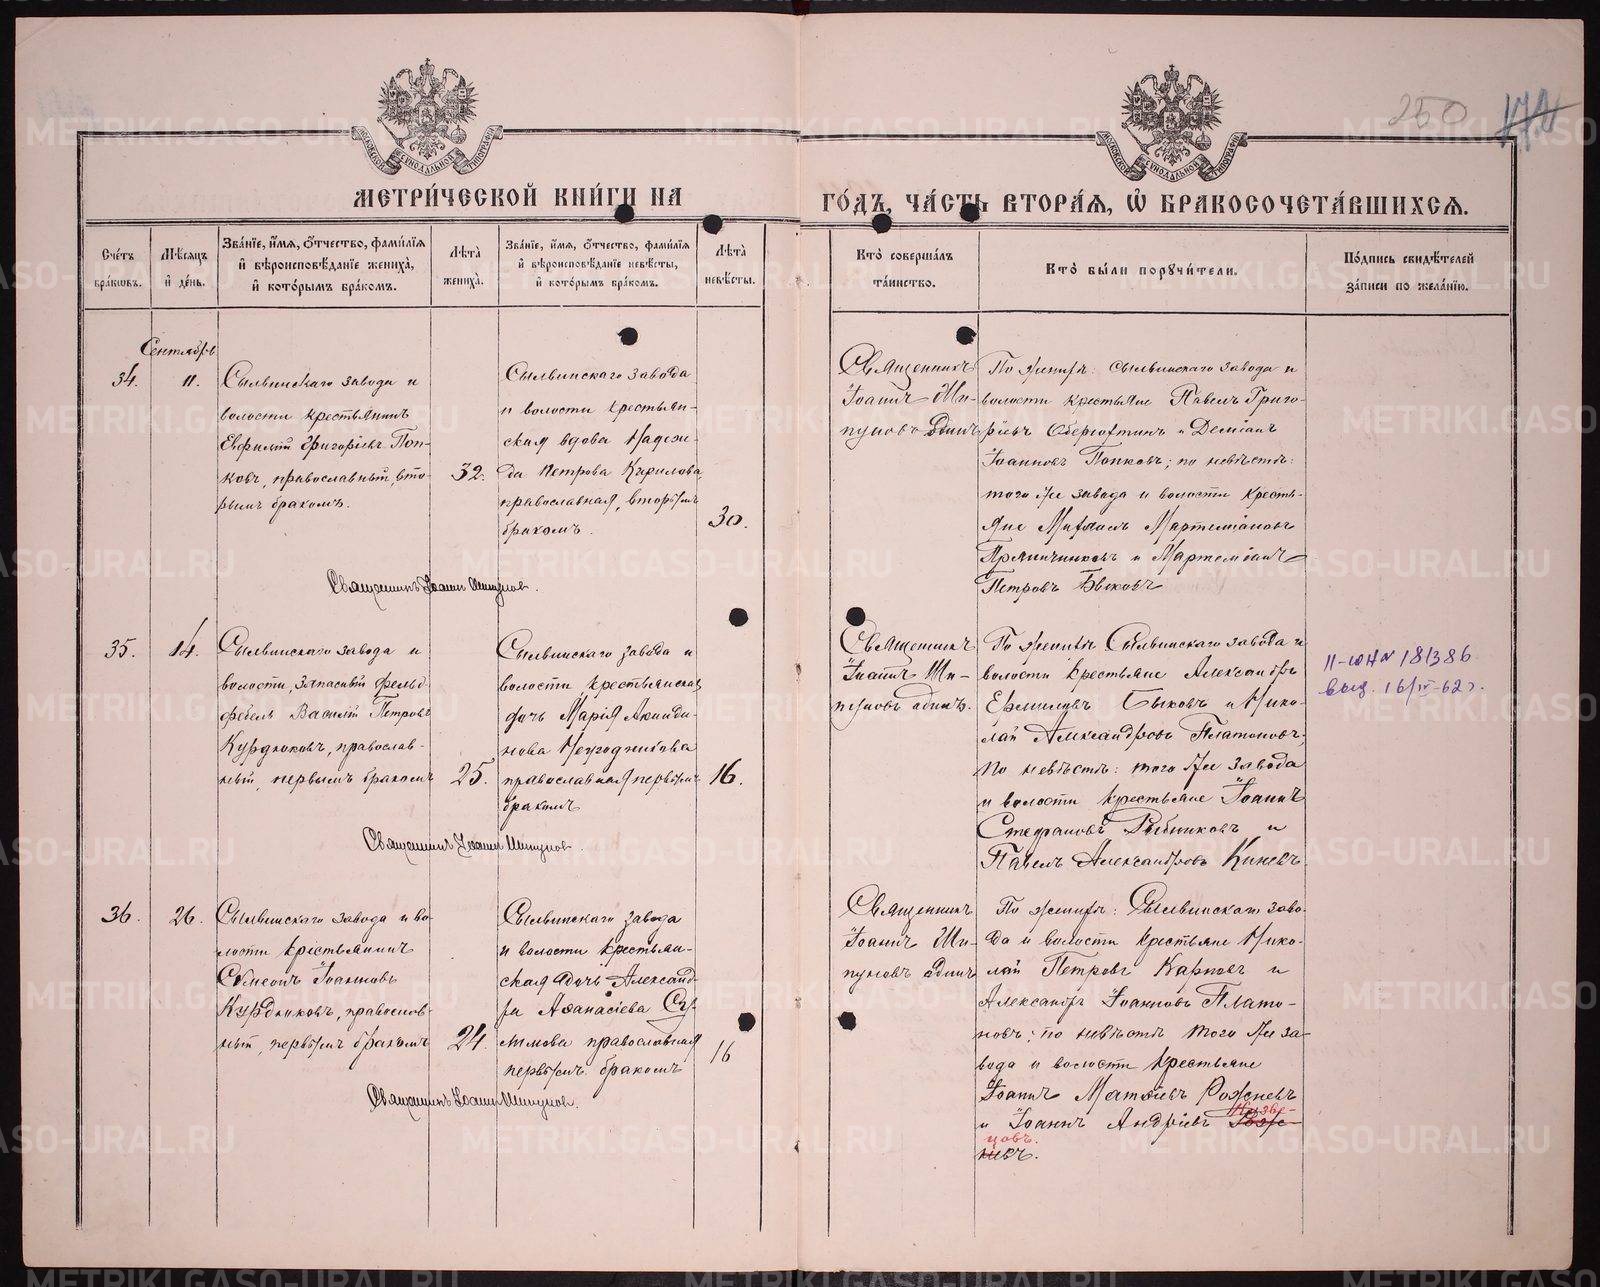 250
МЕТРИЧЕСКОЙ КНИГИ НА
ГОДЪ, ЧАСТЬ ВТОРАЯ, Ѡ БРАКОСОЧЕТАВШИХСЯ.
Счетъ браковъ.
Мѣсяцъ и день.
Званіе, имя, отчество, фамилія
и вѣроисповѣданіе жениха,
и которымъ бракомъ.
Лѣта
жениха.
Званіе, имя, отчество, фамилія
и вѣроисповѣданіе невѣсты,
и которымъ бракомъ.
Лѣта
невѣсты.
Кто совершалъ
таинство.
Кто были поручители.
Подпись свидѣтелей
записи по желанію.
Сентябрь
34.
11.
Сылвинскаго завода и
волости крестьянинъ
Евфимій Григоріевъ Поп-
ковъ, православный, вто-
рымъ бракомъ.
32.
Сылвинскаго завода
и волости крестьян-
ская вдова Надеж-
да Петрова Кирилова,
православная, вторымъ
бракомъ.
30.
Священникъ
Іоаннъ Ши-
пуновъ единъ
По женихѣ: Сылвинскаго завода и
волости крестьяне Павелъ Григо-
ріевъ Обертотинъ и Деміанъ
Іоанновъ Попковъ; по невѣстѣ:
того же завода и волости кресть-
яне Михаилъ Мартеміановъ
Пряничниковъ и Мартеміанъ
Петровъ Быковъ
Священникъ Іоаннъ Шипуновъ.
35.
14.
Сылвинскаго завода и
волости, запасный фельд-
фебель Василій Петровъ
Курдюковъ, православ-
ный, первымъ бракомъ
25.
Сылвинскаго завода и
волости, крестьянская
дочь Марія Акинди-
нова Негодникова
православная первымъ
бракомъ
16.
Священникъ
Іоаннъ Ши-
пуновъ единъ.
По женихѣ Сылвинскаго завода и
волости крестьяне Александръ
Ермиловъ Быковъ и Нико-
лай Александровъ Платоновъ,
по невѣстѣ: того же завода
и волости крестьяне Іоаннъ
Стефановъ Рыбниковъ и
Павелъ Александровъ Киневъ
II-ЮН№ 181386
выд. 16/IV-62г.
Священникъ Іоаннъ Шипуновъ.
36.
26.
Сылвинскаго завода и во-
лости крестьянинъ
Симеонъ Іоанновъ
Курдюковъ, православ-
ный, первымъ бракомъ
24.
Сылвинскаго завода
и волости крестьян-
ская дочь Александ-
ра Аѳанасіева
православная
первымъ бракомъ
16
Священникъ
Іоаннъ Ши-
пуновъ единъ
По женихѣ: Сылвинскаго заво-
да и волости крестьяне Нико-
лай Петровъ Карповъ и
Александръ Іоанновъ Плато-
новъ; по невѣстѣ того же за-
вода и волости крестьяне
Іоаннъ Матѳіевъ Рожневъ
и Іоаннъ Андріевъ Рож-
невъ.
Священникъ Іоаннъ Шипуновъ.
METRIKI.GASO-URAL.RU